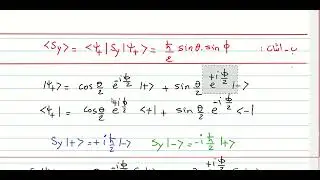 ب - اثبات : <Sy> = <ψ₊|Sy|ψ₊> = ħ/2 sinθ. sinϕ
|ψ₊> = cos θ/2 e^(-iϕ/2) |+> + sin θ/2 e^(+iϕ/2) |->
<ψ₊| = cos θ/2 e^(+iϕ/2) <+| + sin θ/2 e^(-iϕ/2) <-|
Sy|+> = +i ħ/2 |-> Sy|-> = -i ħ/2 |+>